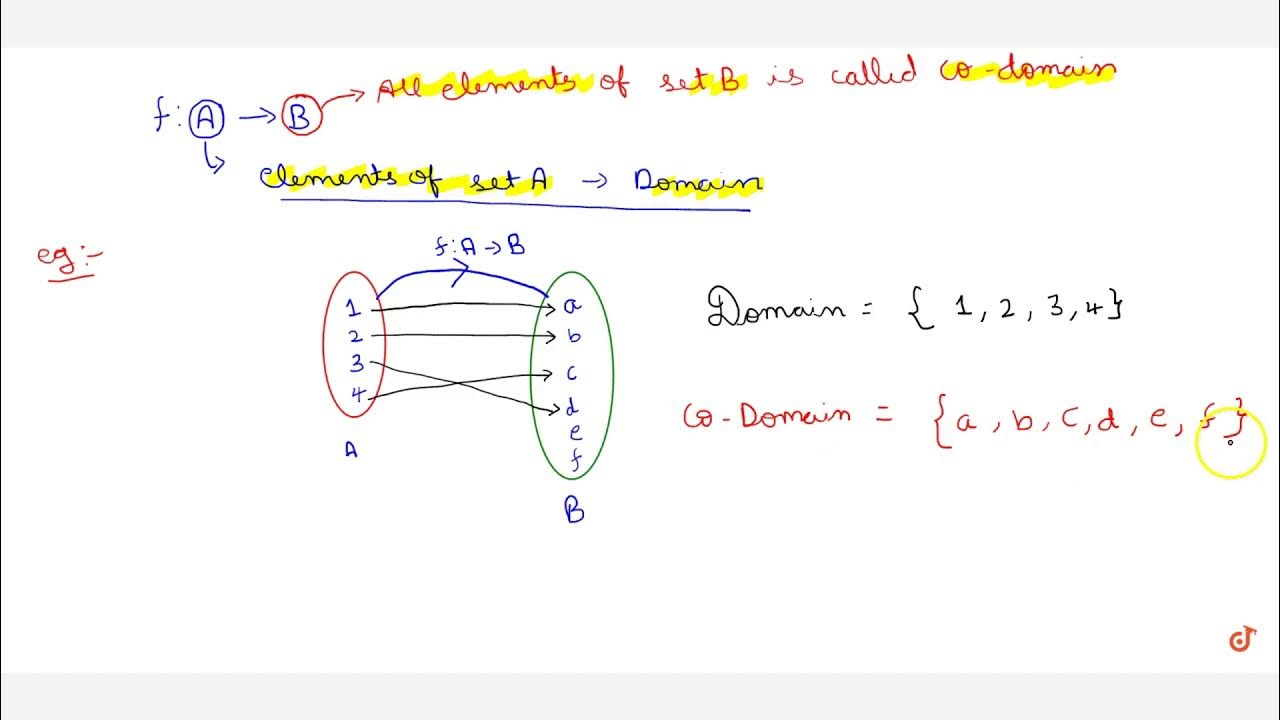 All elements of set B is called co-domain
f: A → B
elements of set A → Domain
eg:-
f: A → B
1
2
3
4
A
a
b
c
d
e
f
B
Domain = { 1, 2, 3, 4}
co-Domain = {a, b, c, d, e, f}